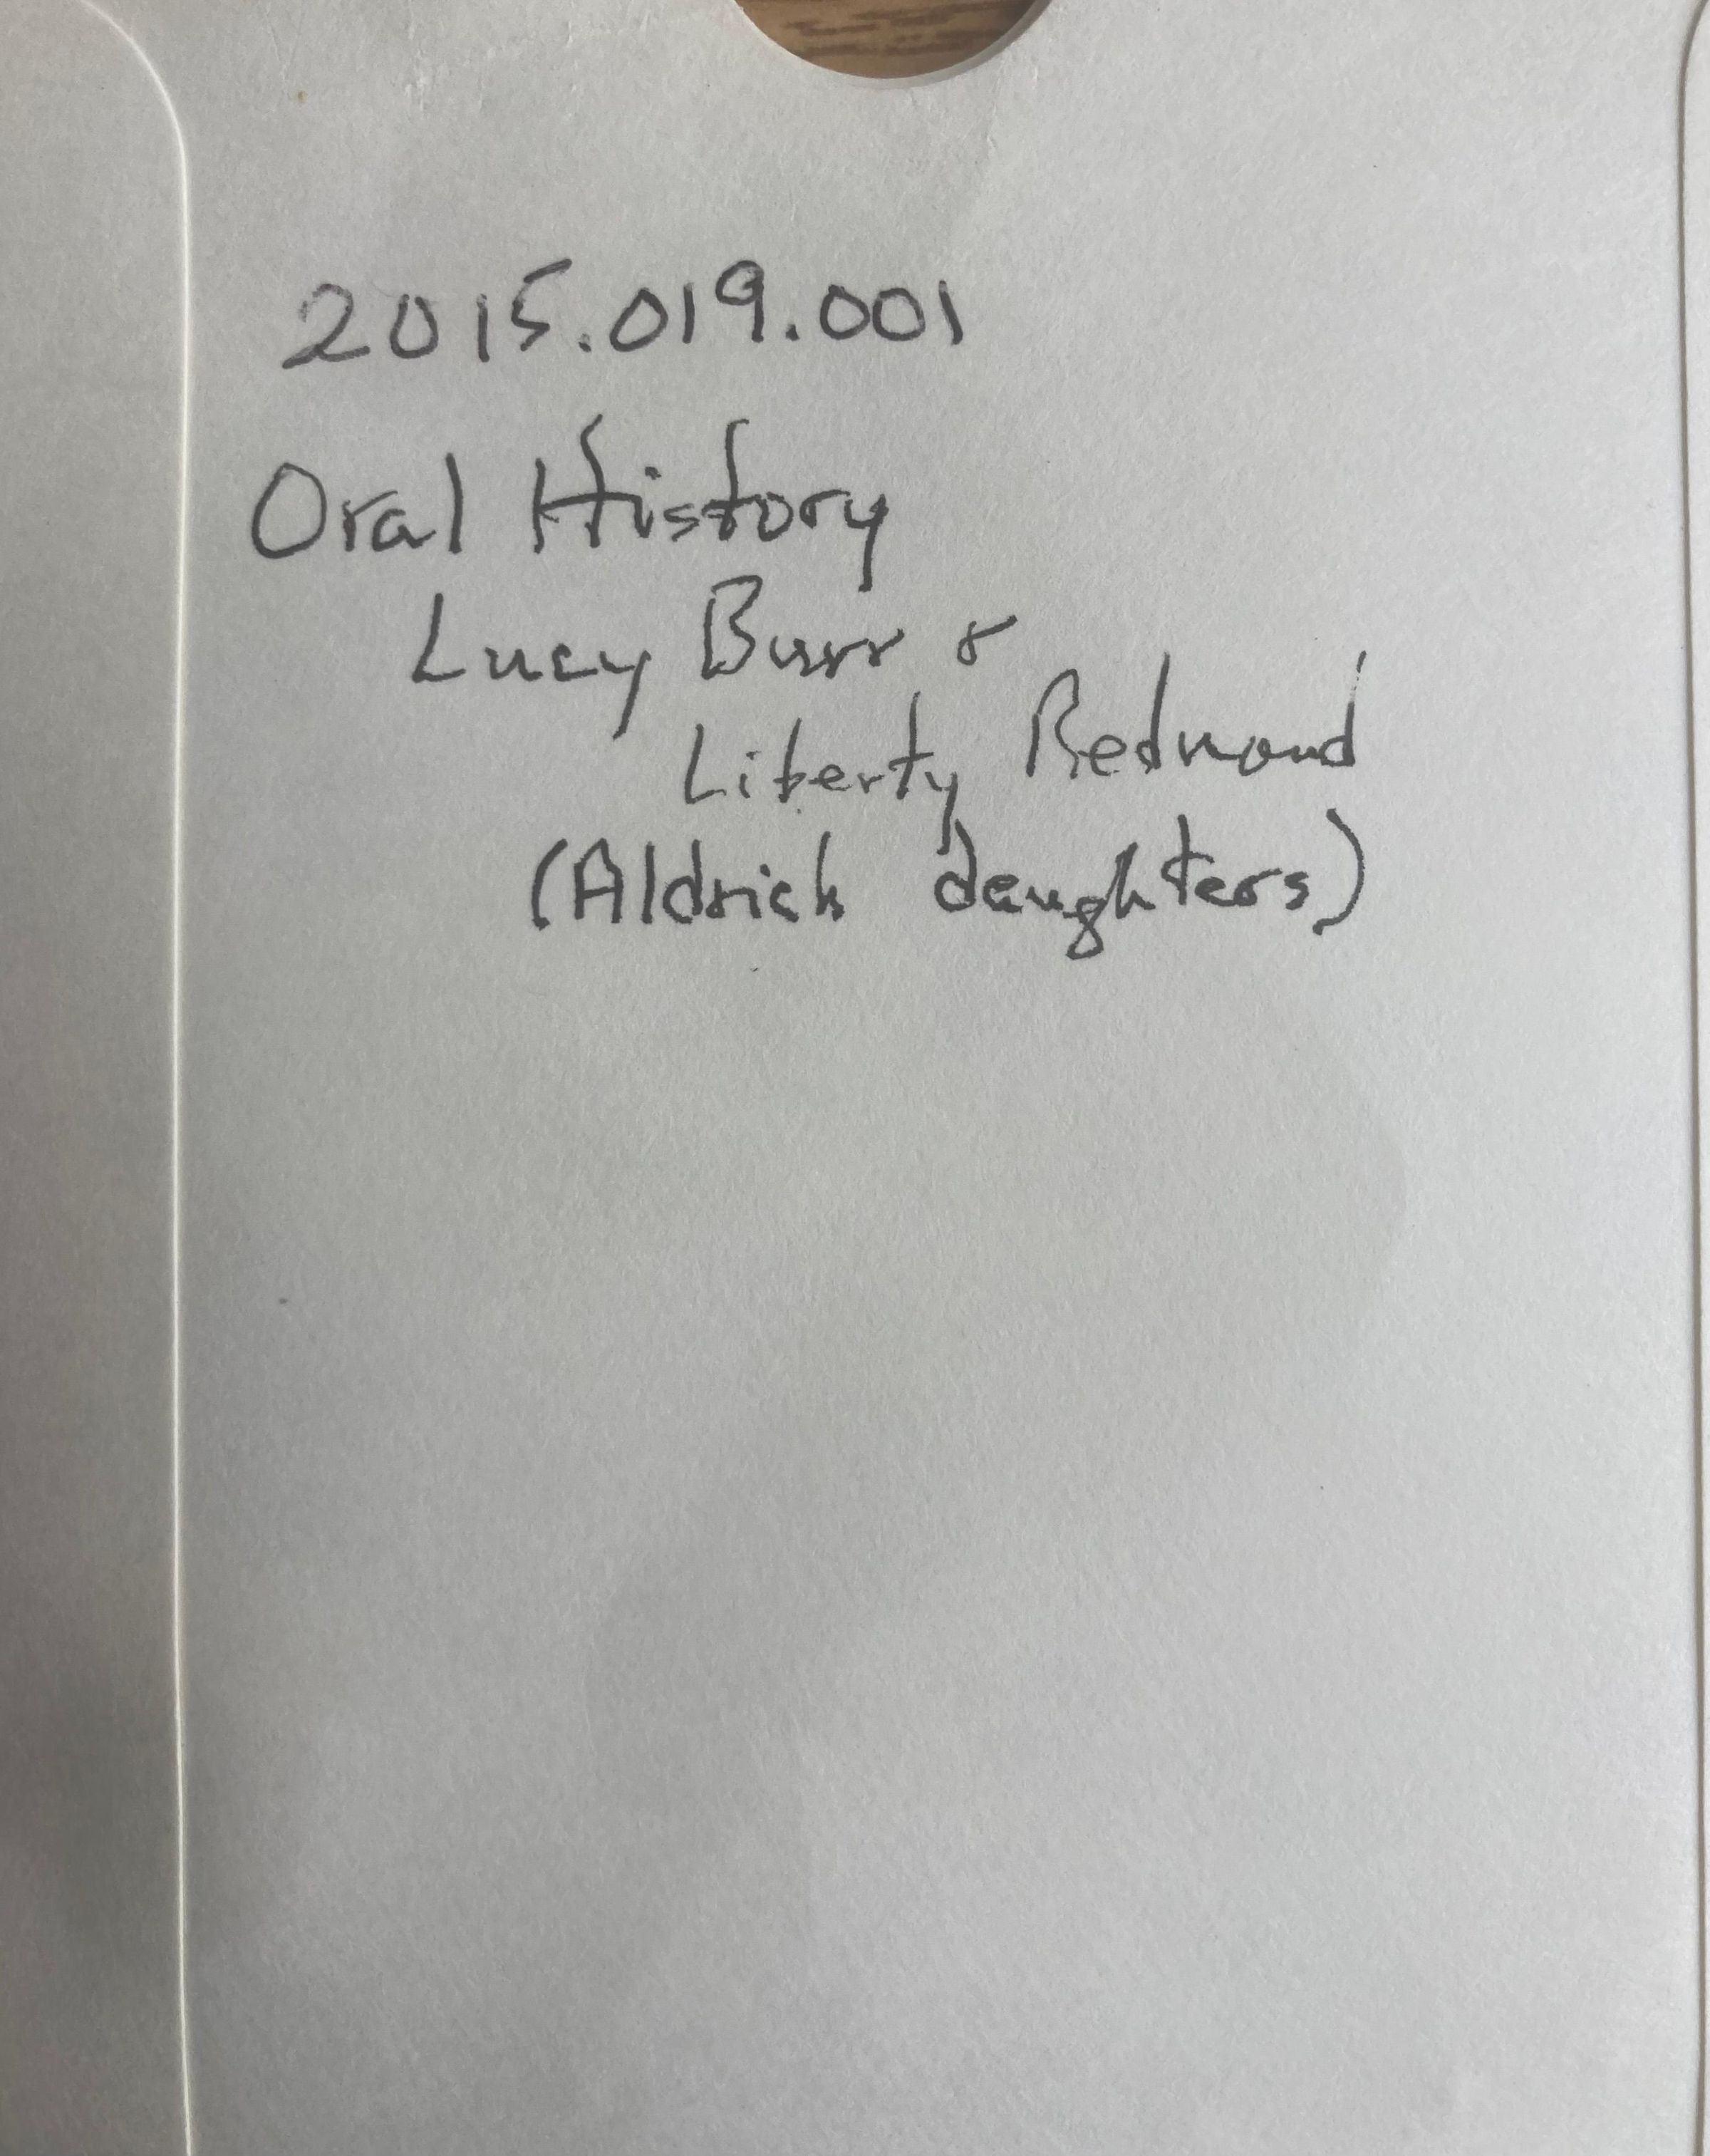 2015.019.001
Oral History
Lucy Burr &
Liberty Redmond
(Aldrich daughters)